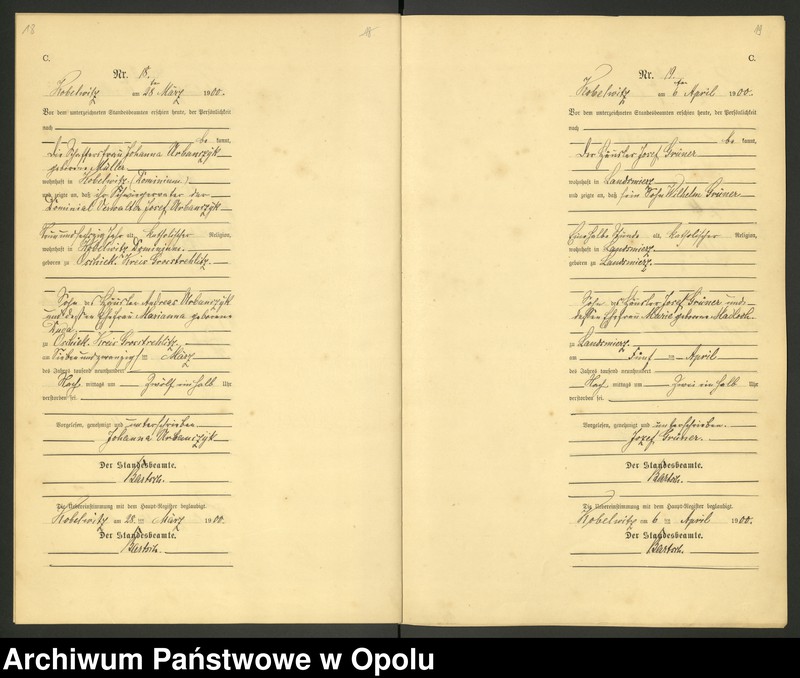 18
18
C.
Nr. 18.
Kobelwitz am 28ten März 1900.
Vor dem unterzeichneten Standesbeamten erschien heute, der Persönlichkeit
nach
be kannt,
die Schaffersfrau Johanna Urbanczyk
geborene Müller
wohnhaft in Kobelwitz (Dominium)
und zeigte an, daß ihr Schwiegervater der
Dominial Verwalter Josef Urbanczyk
Neunundsechzig Jahr alt, katholischer Religion,
wohnhaft in Kobelwitz Dominium.
geboren zu Oschiek Kreis Grosstrehlitz.
Sohn des Häusler Andreas Urbanczyk
und dessen Ehefrau Marianna geborene
zu Oschiek. Kreis Grosstrehlitz.
am Siebenundzwanzigsten März
des Jahres tausend neunhundert
Nach mittags um Zwölf ein halb Uhr
verstorben sei.
Vorgelesen, genehmigt und unterschrieben
Johanna Urbanczyk
Der Standesbeamte.
Bartsch.
Die Uebereinstimmung mit dem Haupt-Register beglaubigt.
Kobelwitz am 28ten März 1900.
Der Standesbeamte.
Bartsch.
19
C.
Nr. 19.
Kobelwitz am 6ten April 1900.
Vor dem unterzeichneten Standesbeamten erschien heute, der Persönlichkeit
nach
be kannt,
der Häusler Josef Grüner
wohnhaft in Landsmierz
und zeigte an, daß sein Sohn Wilhelm Grüner
Eine halbe Stunde alt, katholischer Religion,
wohnhaft in Landsmierz
geboren zu Landsmierz.
Sohn des Häusler Josef Grüner und
dessen Ehefrau Marie geborene
zu Landsmierz.
am Fünften April
des Jahres tausend neunhundert
Nach mittags um Zwei ein halb Uhr
verstorben sei.
Vorgelesen, genehmigt und unterschrieben.
Jozef Grüner.
Der Standesbeamte.
Bartsch.
Die Uebereinstimmung mit dem Haupt-Register beglaubigt.
Kobelwitz am 6ten April 1900.
Der Standesbeamte.
Bartsch.
Archiwum Państwowe w Opolu